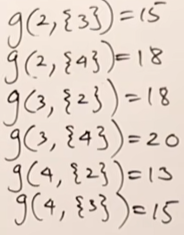 g(2,{3})=15
g(2,{4})=18
g(3,{2})=18
g(3,{4})=20
g(4,{2})=13
g(4,{3})=15